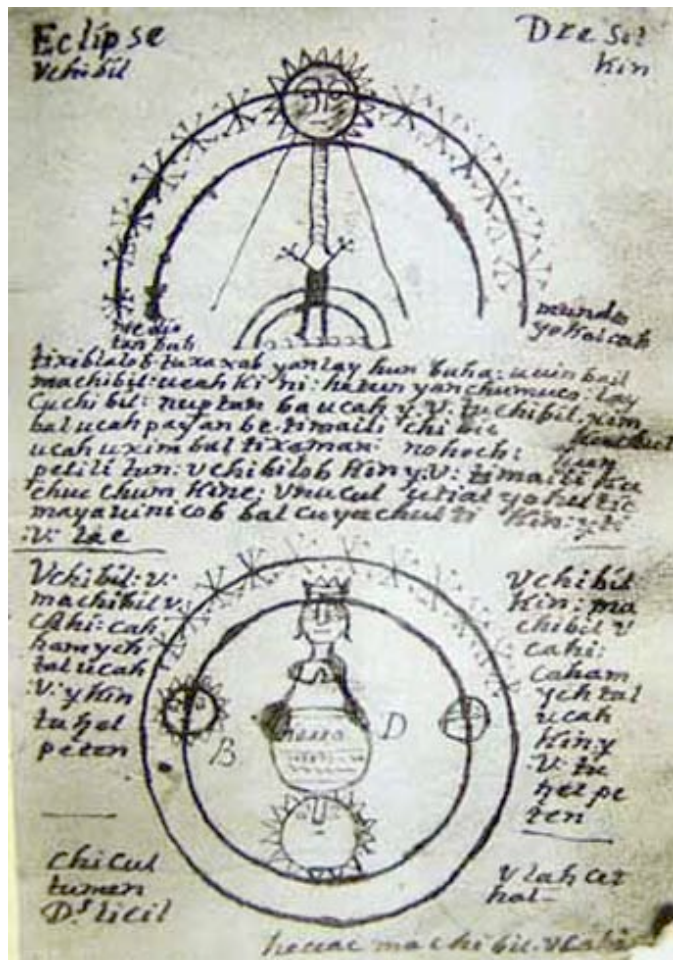 Eclipse
Vchibil
Dre Sol
kin
medio
tan bab
mundo
yokolcab
tixiblalob tuxaxob yanlay hun buha: u uin bail
machibil: ucah Ki ni: hetun yanchumuco: lay
Cuchi bil: nuptan ba ucah y. V. tuchibil. xim
bal ucah payan be. timaili chi bic
ucah u xim bal tixaman nohoch:
petili tun: Vchibilob Kin y: V: timaili Ku
chuc chum Kine: Vnucul utial yohultic
mayauinicob bal cuyuchul ti Kin: y ti
:V: lae
Vchibil: V:
machibil V
cahi: cah
hamych
tal ucah
V: y kin
tuhel
peten
Vchibil
Kin: ma
chibil V
cahi:
caham
ych tal
ucah
Kiny
:V: tu
hel pe
ten
B
D
tierra
chicul
tumen
Ds licil
V lah cet
hal
hecuac machibil. Vcabi